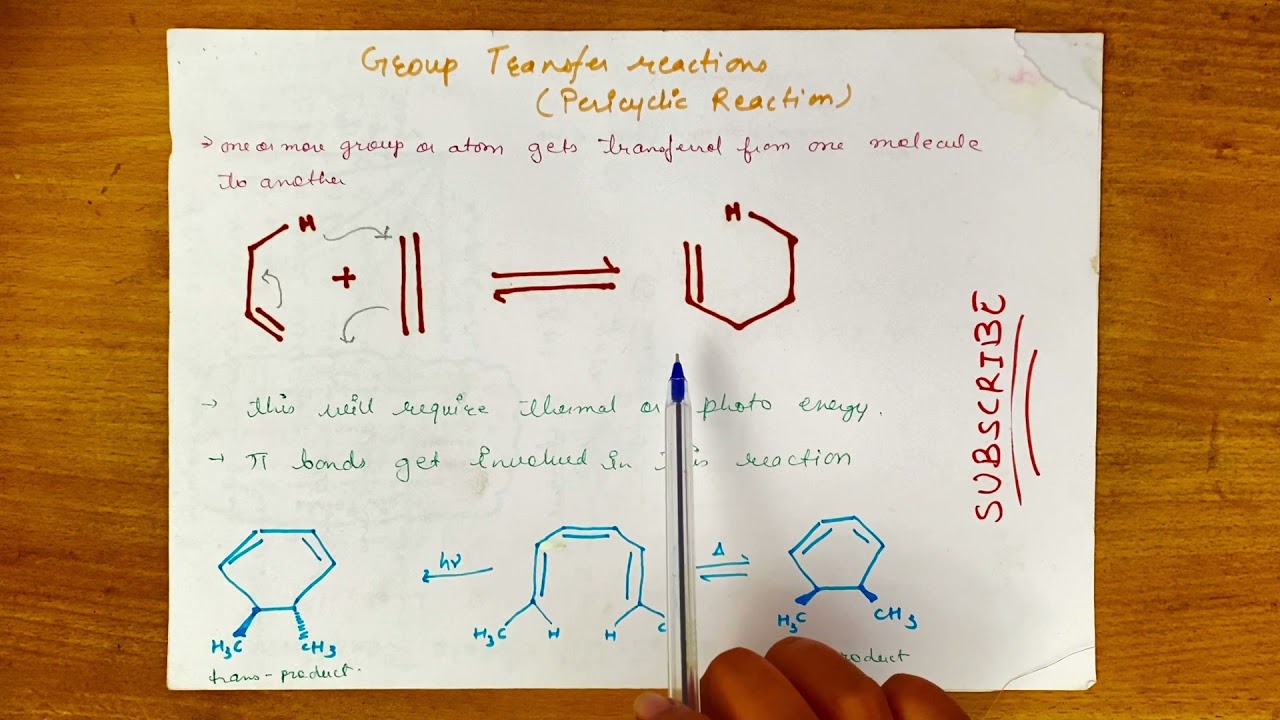 Group Transfer reactions
(Pericyclic Reaction)
→ one or more group or atom gets transferred from one molecule
to another
H
+
H
→ this will require thermal or photo energy.
→ π bonds get involved in this reaction
SUBSCRIBE
hν
Δ
H₃C H H
H₃C CH₃
H₃C CH₃
trans-product.